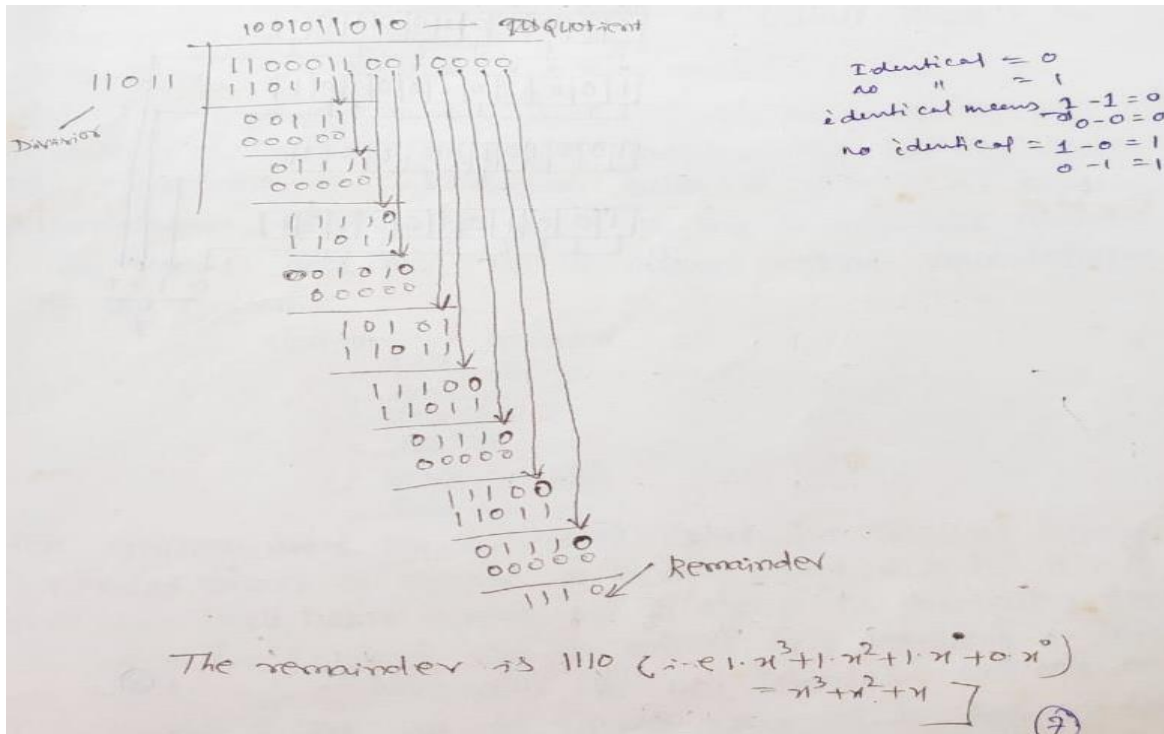 1001011010 Quotient
11011 11000110010000
Divavior
11011
00111
00000
01111
00000
11110
11011
001010
00000
10101
11011
11100
11011
01110
00000
11100
11011
01110
00000
1110
Remainder
Identical = 0
no " = 1
identical means 1 - 1 = 0
0 - 0 = 0
no identical = 1 - 0 = 1
0 - 1 = 1
The remainder is 1110 (i.e 1.x³+1.x²+1.x+0.x⁰)
= x³+x²+x ]
7